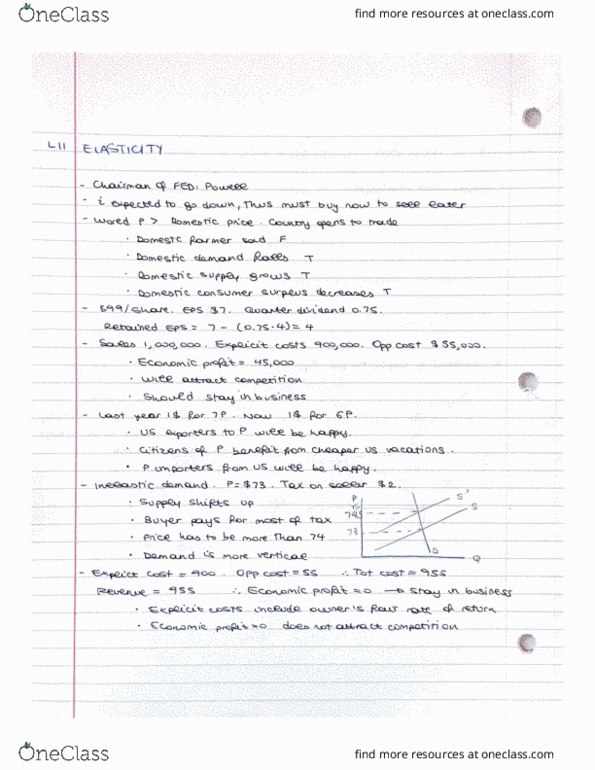 OneClass
find more resources at oneclass.com
L11 ELASTICITY
- Chairman of FED: Powell
- i expected to go down, thus must buy now to sell later
- World P > Domestic price. Country opens to trade
· Domestic farmer sad F
· Domestic demand falls T
· Domestic supply grows T
· Domestic consumer surplus decreases T
- $99/share. EPS $7. Quarter dividend 0.75.
Retained EPS = 7 - (0.75·4) = 4
- Sales 1,000,000. Explicit costs 900,000. Opp cost $55,000.
· Economic profit = 45,000
· Will attract competition
· Should stay in business
- Last year 1$ for 7P. Now 1$ for 6P.
· US exporters to P will be happy.
· Citizens of P benefit from cheaper US vacations.
· P importers from US will be happy.
- Inelastic demand. P=$73. Tax on seller $2.
· Supply shifts up
· Buyer pays for most of tax
· Price has to be more than 74
· Demand is more vertical
P
73
S'
S
D
Q
- Explicit cost = 900. Opp cost = 55 ∴ Tot cost = 955
Revenue = 955 ∴ Economic profit = 0 → stay in business
· Explicit costs include owner's fair rate of return
· Economic profit = 0 does not attract competition
OneClass
find more resources at oneclass.com